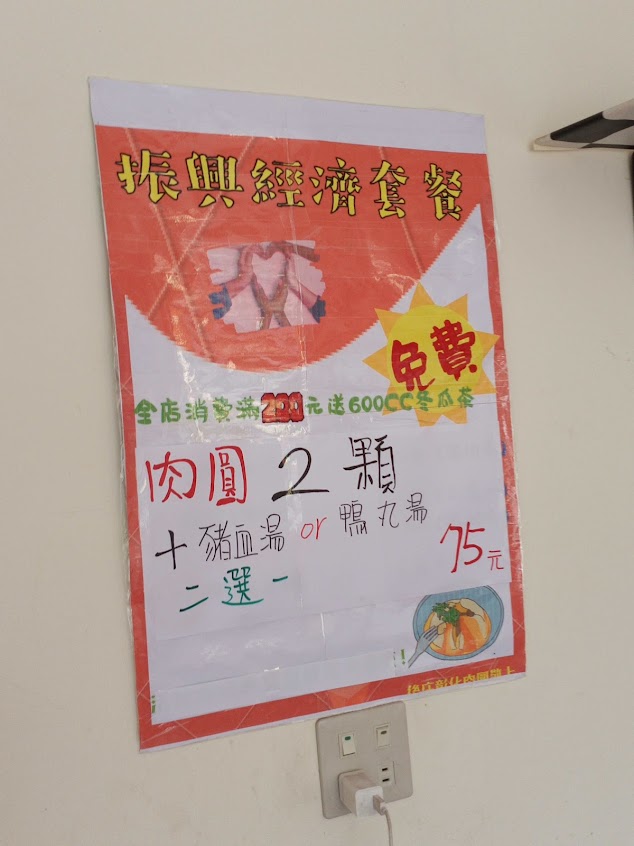 振興經濟套餐
免費
全店消費滿200元送600CC冬瓜茶
肉圓 2 顆
+ 豬血湯 or 鴨丸湯
二選一
75元
!!
彰化肉圓敬上